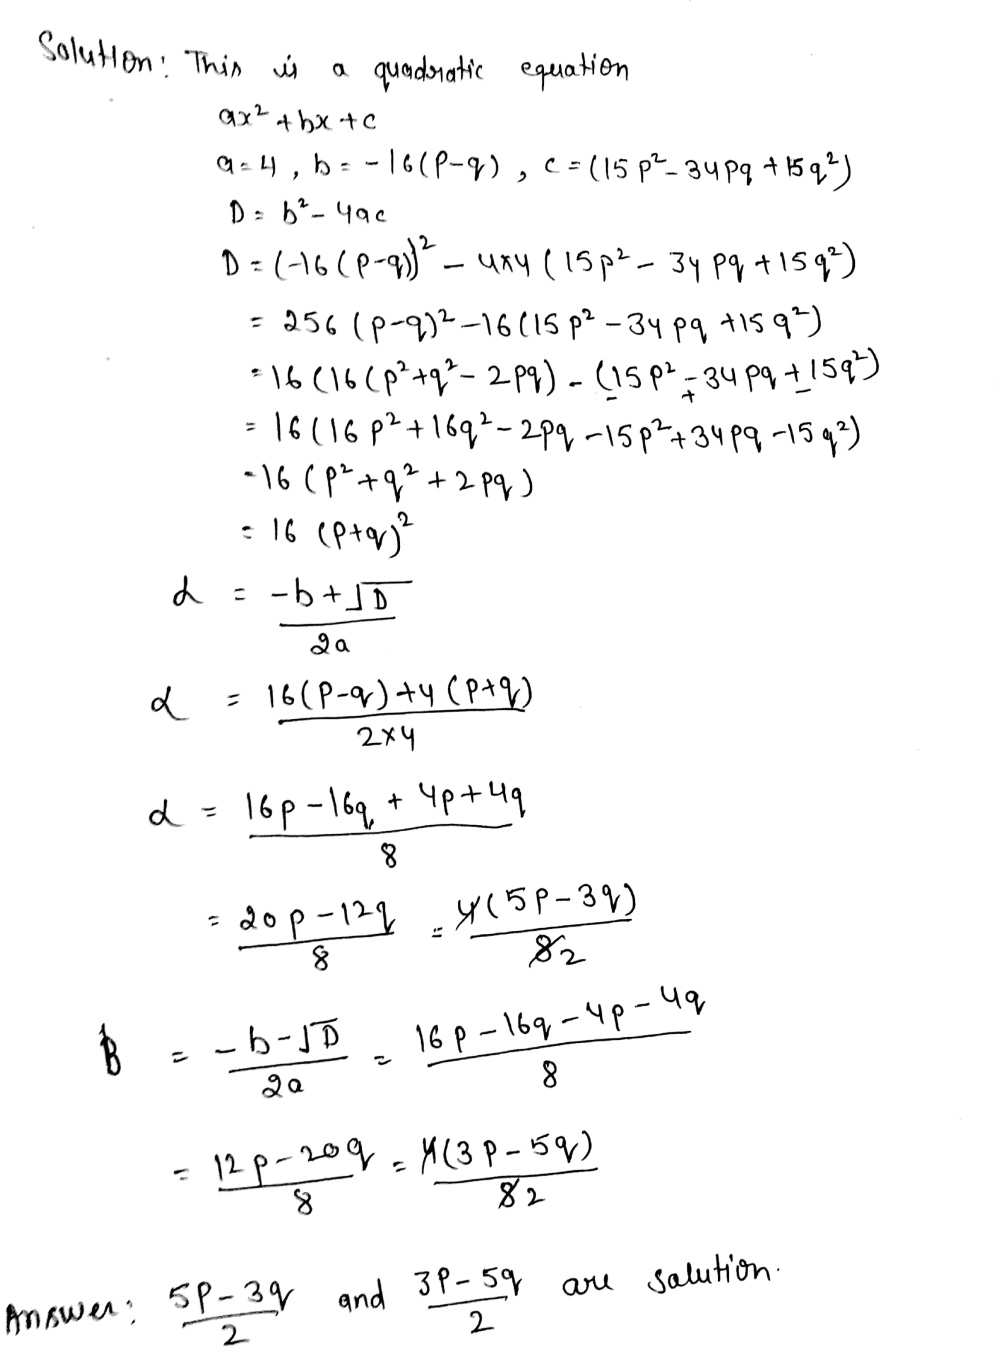 Solution: This is a quadratic equation
ax² + bx + c
a = 4 , b = -16(P-q) , c = (15p² - 34pq + 15q²)
D = b² - 4ac
D = (-16(P-q))² - 4×4 (15p² - 34pq + 15q²)
= 256 (p-q)² - 16(15p² - 34pq + 15q²)
= 16 (16(p²+q² - 2pq) - (15p² - 34pq + 15q²)
- + -
= 16 (16p² + 16q² - 2pq - 15p² + 34pq - 15q²)
= 16 (p² + q² + 2pq)
= 16 (p+q)²
α = (-b + √D)/2a
α = (16(P-q) + 4(p+q))/(2×4)
α = (16p - 16q + 4p + 4q)/8
= (20p - 12q)/8 = 4(5p - 3q)/8 2
β = (-b - √D)/2a = (16p - 16q - 4p - 4q)/8
= (12p - 20q)/8 = 4(3p - 5q)/8 2
Answer: (5P - 3q)/2 and (3P - 5q)/2 are solution.